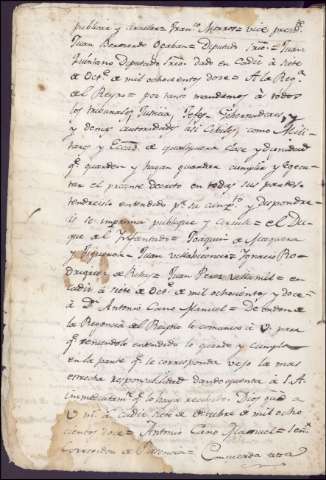 publicar y circular= Fran.co Morros vice presid.
Juan Bernardo Ogaban= Diputado Srio= Juan
Quintano Diputado Srio= Dado en Cadiz à siete
de Oct.e de mil ochocientos doze= A la Reg.a
del Reyno= por tanto mandamos à todos
los tribunales, Justicias, Jefes, Gobernadores, y
y demas autoridades asi Civiles, como Mili-
tares y Eccas de qualquiera clase y dignidad
q.e guarden y hagan guardar cumplir y egecu-
tar el presente Decreto en todas sus partes=
tendreislo entendido p.a su cump.to y dispondre-
is se imprima publique y circule= el Du-
que del Infantado= Joaquin de Mosquera
y Figueroa= Juan Villabicencio= Ignacio Ro-
driguez de Rivas= Juan Perez Villamil= en
Cadiz à siete de Oct.e de mil ochocientos y doce=
à D.n Antonio Cano Manuel= De orden de
la Regencia del Reyno lo comunico à V. para
q.e teniendolo entendido lo guarde y cumpla
en la parte q.e le corresponda vajo la mas
estrecha responsabilidad dando quenta à S.A.
inmediatam.te de lo haver recibido= Dios gue à
V. m.s a.s Cadiz siete de Octubre de mil ocho
cientos doce= Antonio Cano Manuel= Señ.r
Corregidor de Plasencia=